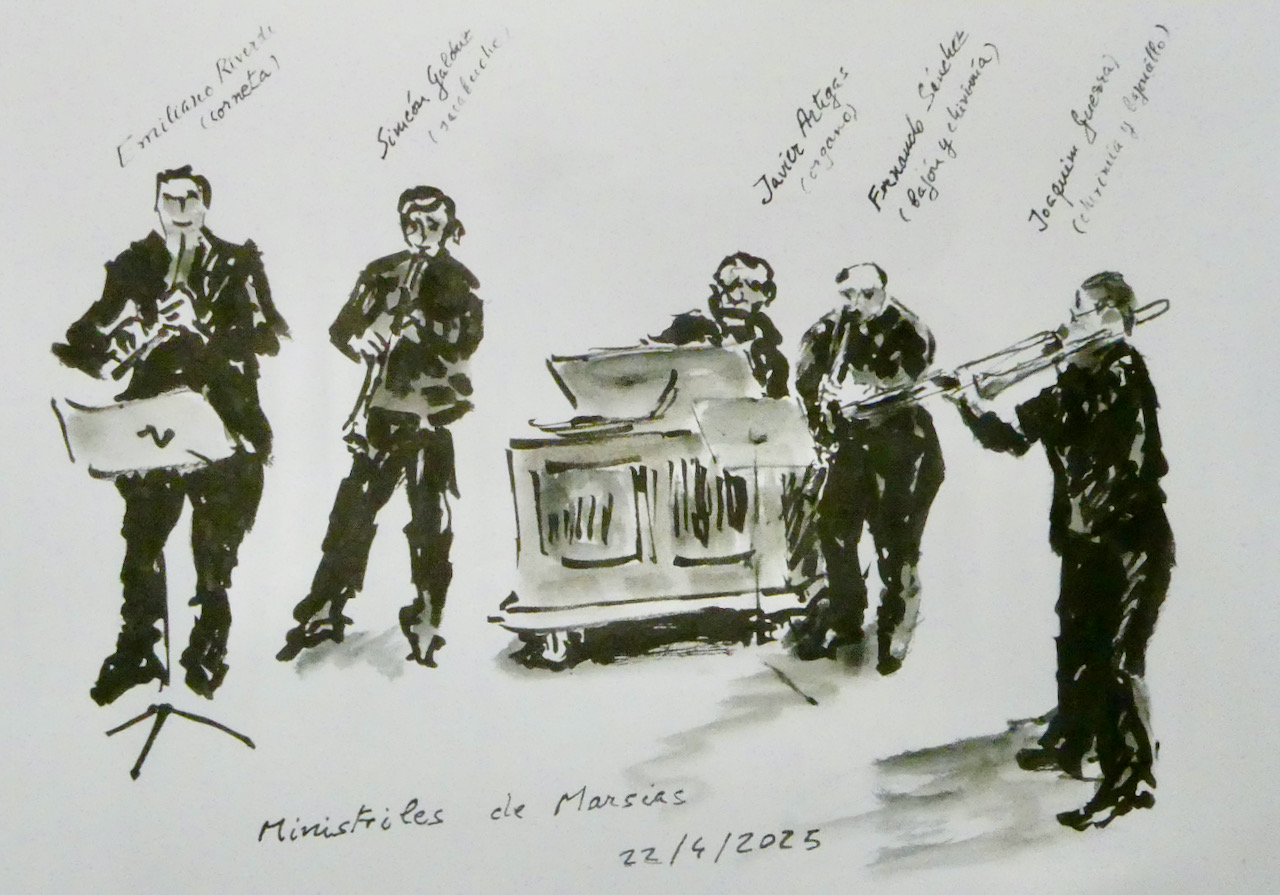 Emiliano Riverdi
(corneta)
Simeón Galduz
(sacabuche)
Javier Artigas
(organo)
Fernando Sánchez
(bajón y chirimía)
Joaquim Guerra)
(chirimia y bajoncillo)
Ministriles de Marsias
22/4/2025